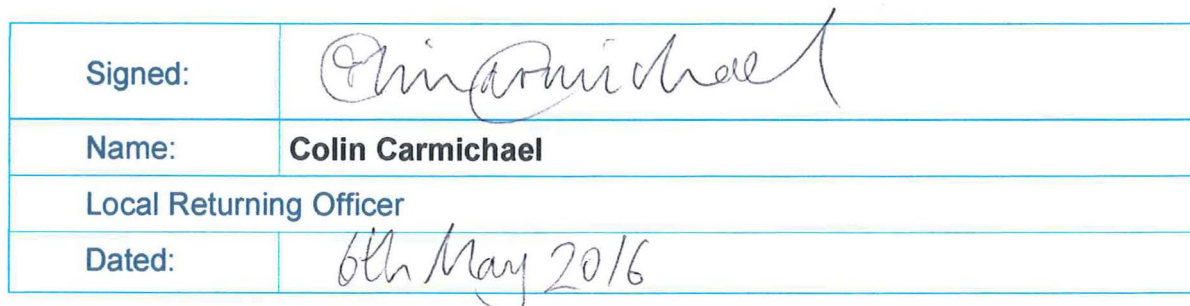 Signed: Colin Carmichael
Name: Colin Carmichael
Local Returning Officer
Dated: 6th May 2016